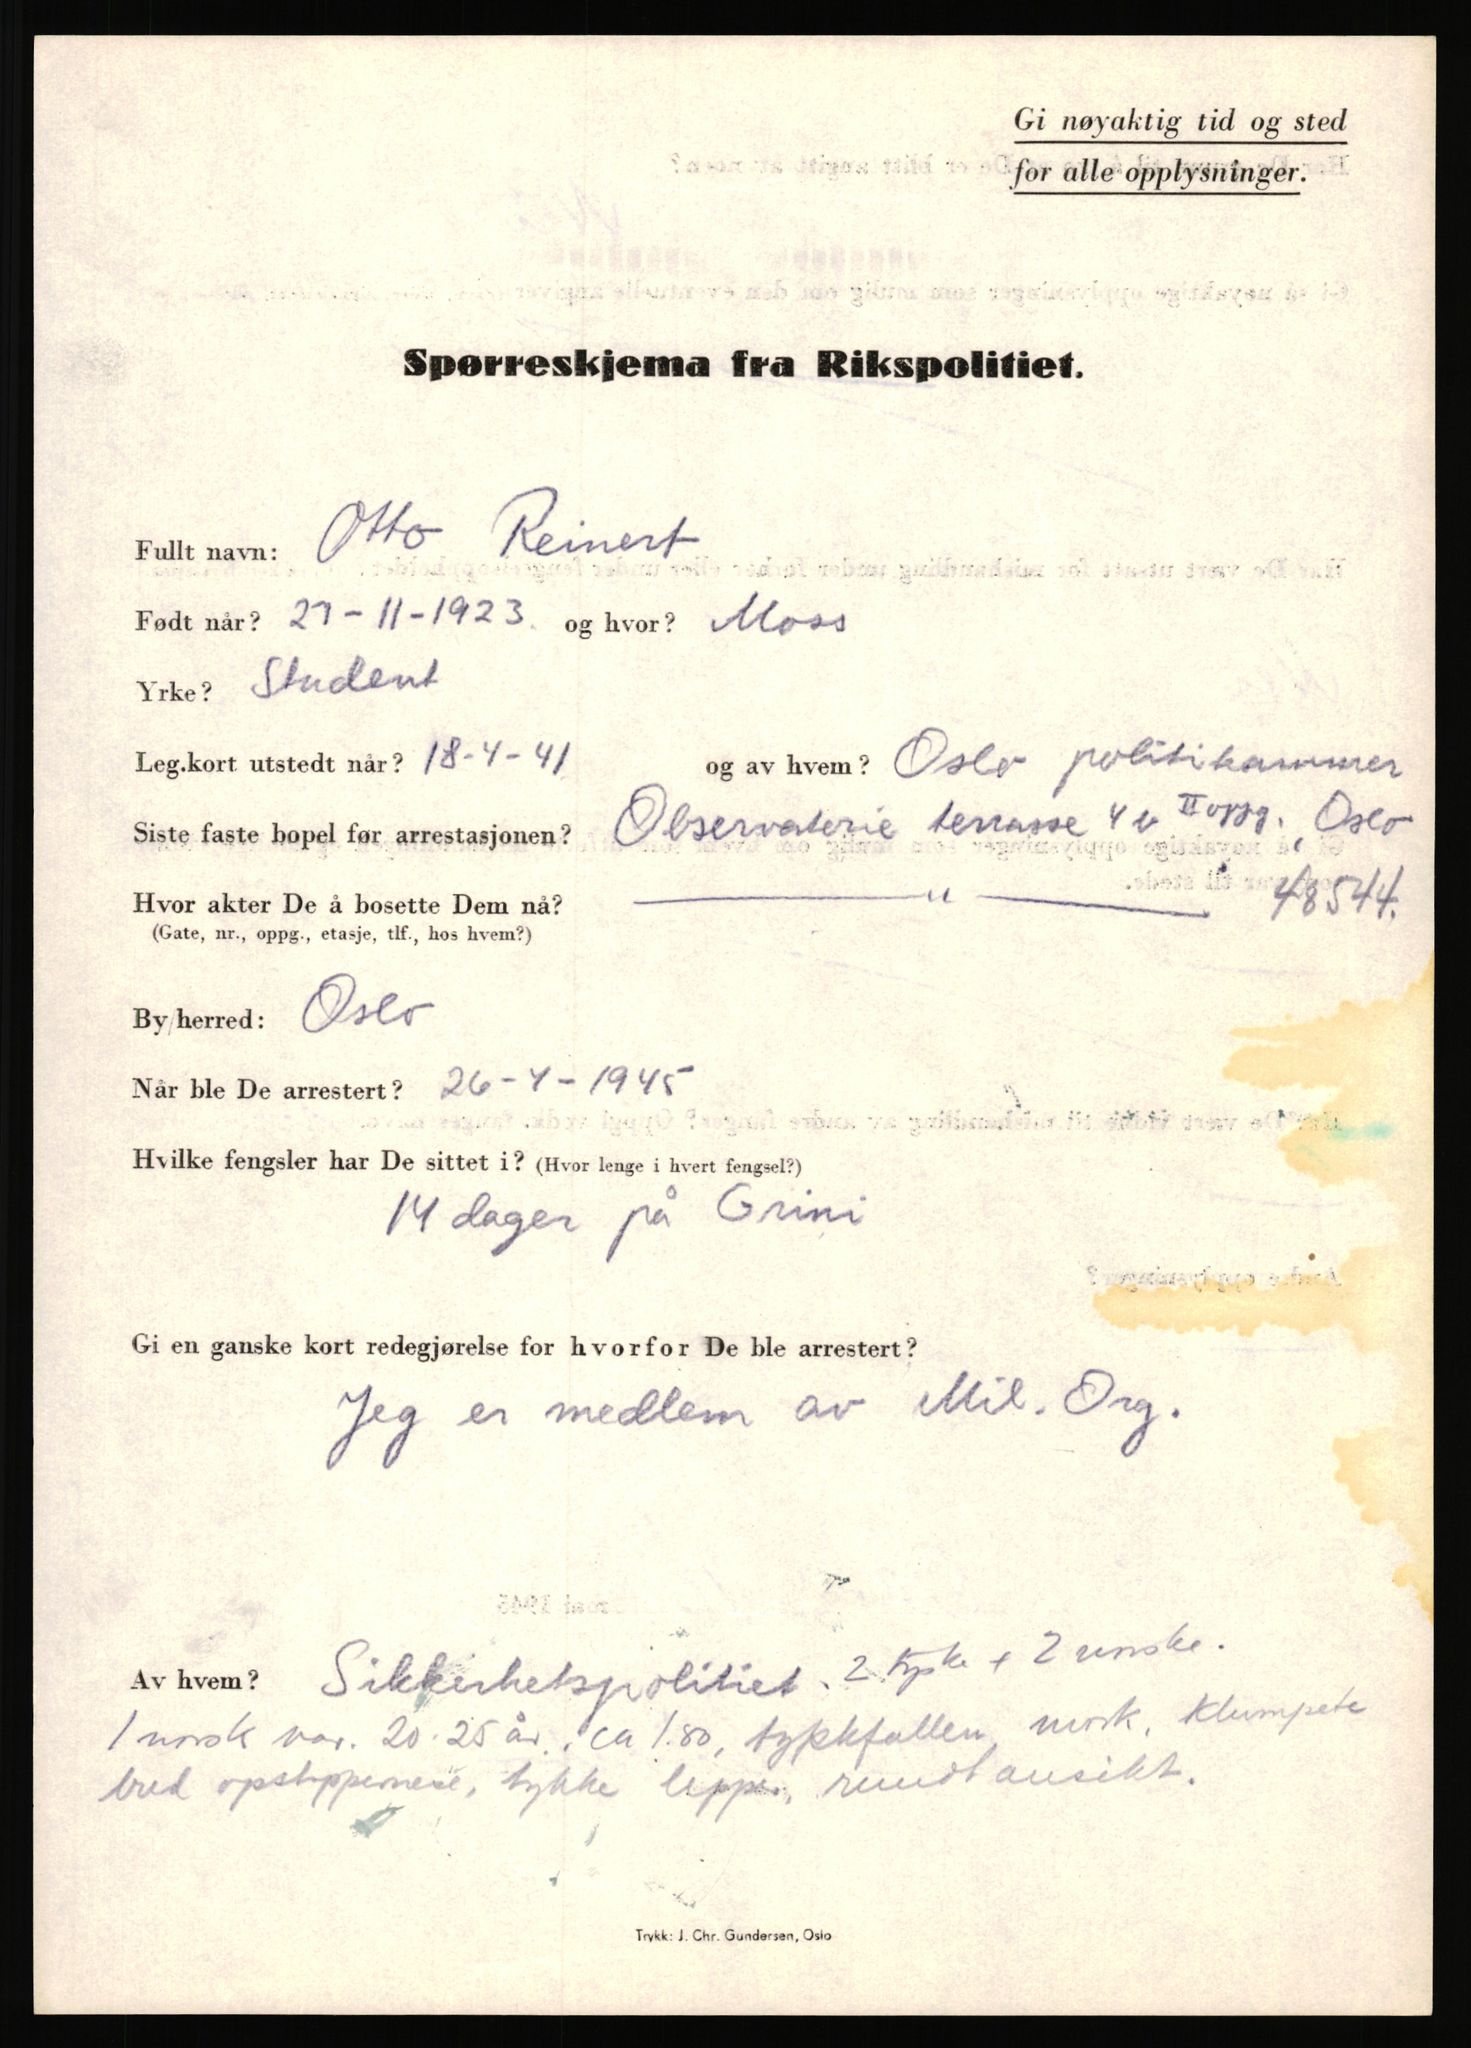 Gi nøyaktig tid og sted
for alle opplysninger.
Spørreskjema fra Rikspolitiet.
Fullt navn: Otto Reinert
Født når? 27-11-1923. og hvor? Moss
Yrke? Student
Leg.kort utstedt når? 18-4-41 og av hvem? Oslo politikammer
Siste faste bopel før arrestasjonen? Observatorie terrasse 4 b II oppg., Oslo
Hvor akter De å bosette Dem nå? — " — 48544.
(Gate, nr., oppg., etasje, tlf., hos hvem?)
By/herred: Oslo
Når ble De arrestert? 26-4-1945
Hvilke fengsler har De sittet i? (Hvor lenge i hvert fengsel?)
14 dager på Grini
Gi en ganske kort redegjørelse for hvorfor De ble arrestert?
Jeg er medlem av Mil. Org.
Av hvem? Sikkerhetspolitiet. 2 tyske + 2 norske.
1 norsk var. 20-25 år, ca 1.80, tykkfallen, mørk, klumpete
bred opstoppernese, tykke lepper, rundt ansikt.
Trykk: J. Chr. Gundersen, Oslo